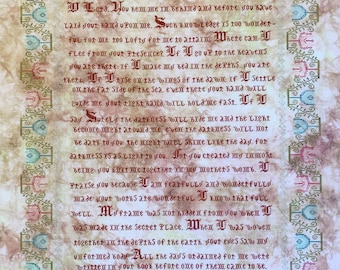 O Lord, You hem me in behind and before, you have
laid your hand upon me. Such knowledge is too wonder-
ful for me too lofty for me to attain. Where can I
flee from your presence? If I go up to the heavens
you are there; if I make my bed in the depths, you are
there. If I rise on the wings of the dawn, if I settle
on the far side of the sea, even there your hand will
guide me your right hand will hold me fast. If I
say Surely the darkness will hide me and the light
become night around me, even the darkness will not
be dark to you the night will shine like the day for
darkness is as light to you. For you created my in-
most being you knit me together in my mother's womb. I
praise you because I am fearfully and wonderfully
made your works are wonderful, I know that full
well. My frame was not hidden from you when I
was made in the secret place. When I was woven
together in the depths of the earth, your eyes saw my
unformed body. All the days ordained for me were
written in your book before one of them came to be.